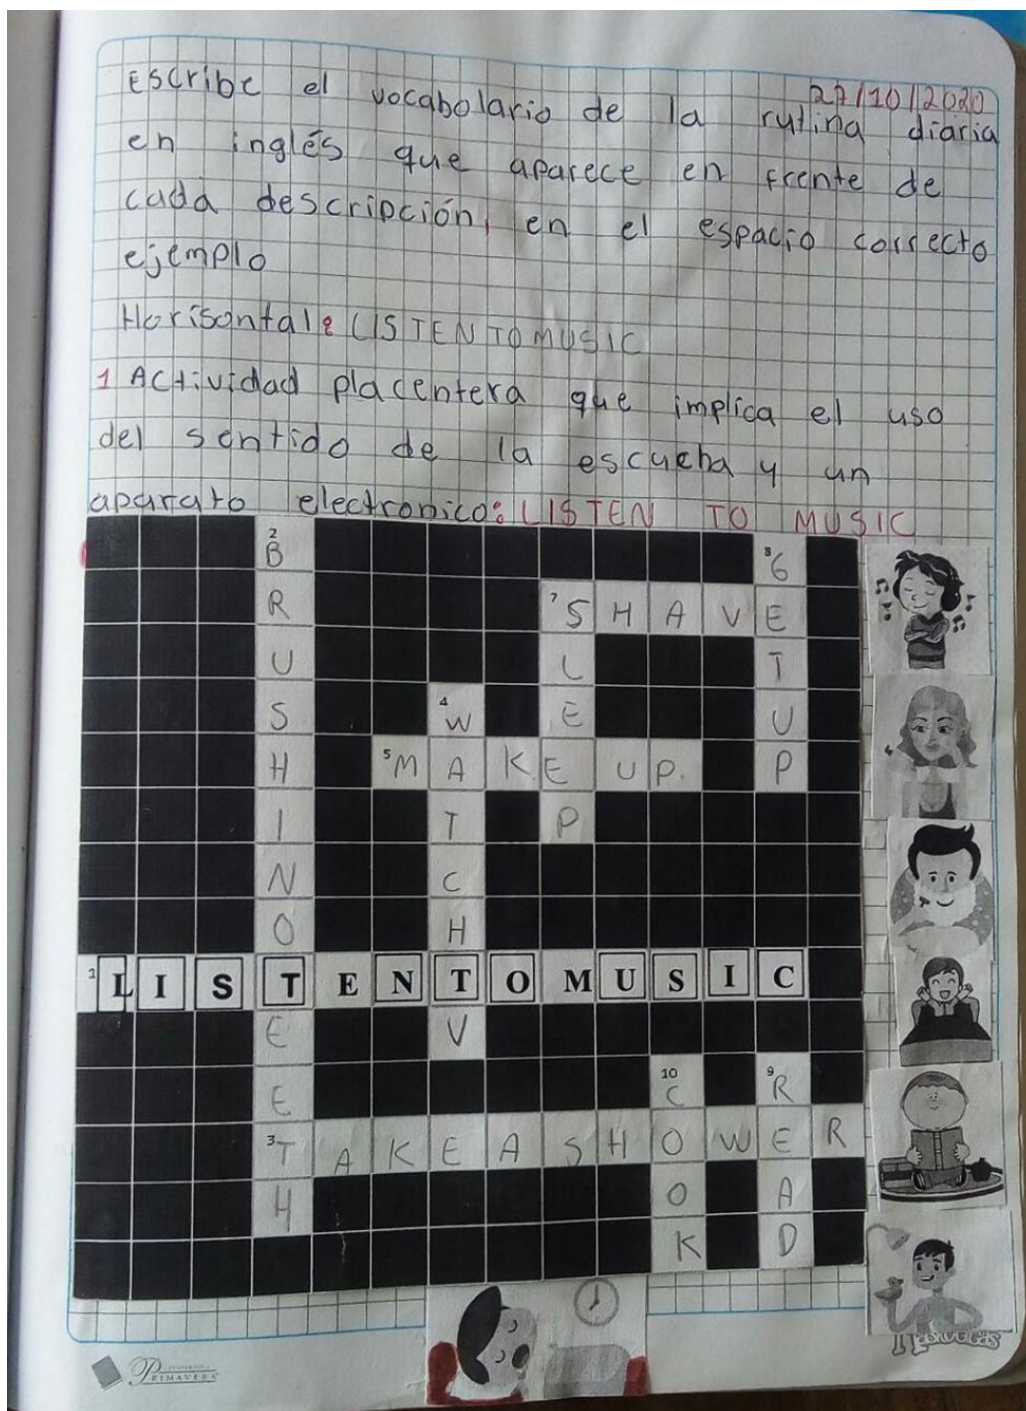 27/10/2020
Escribe el vocabolario de la rutina diaria
en inglés que aparece en frente de
cada descripción, en el espacio correcto
ejemplo
Horisontal: LISTEN TO MUSIC
1 Actividad placentera que implica el uso
del sentido de la escucha y un
aparato electronico: LISTEN TO MUSIC
2 B 3 G
R 7 S H A V E
U L T
S 4 W E U
H 5 M A K E UP. P
I T P
N C
O H
1 L I S T E N T O M U S I C
E V
E 10 C 9 R
3 T A K E A S H O W E R
H O A
K D
PRIMAVERA